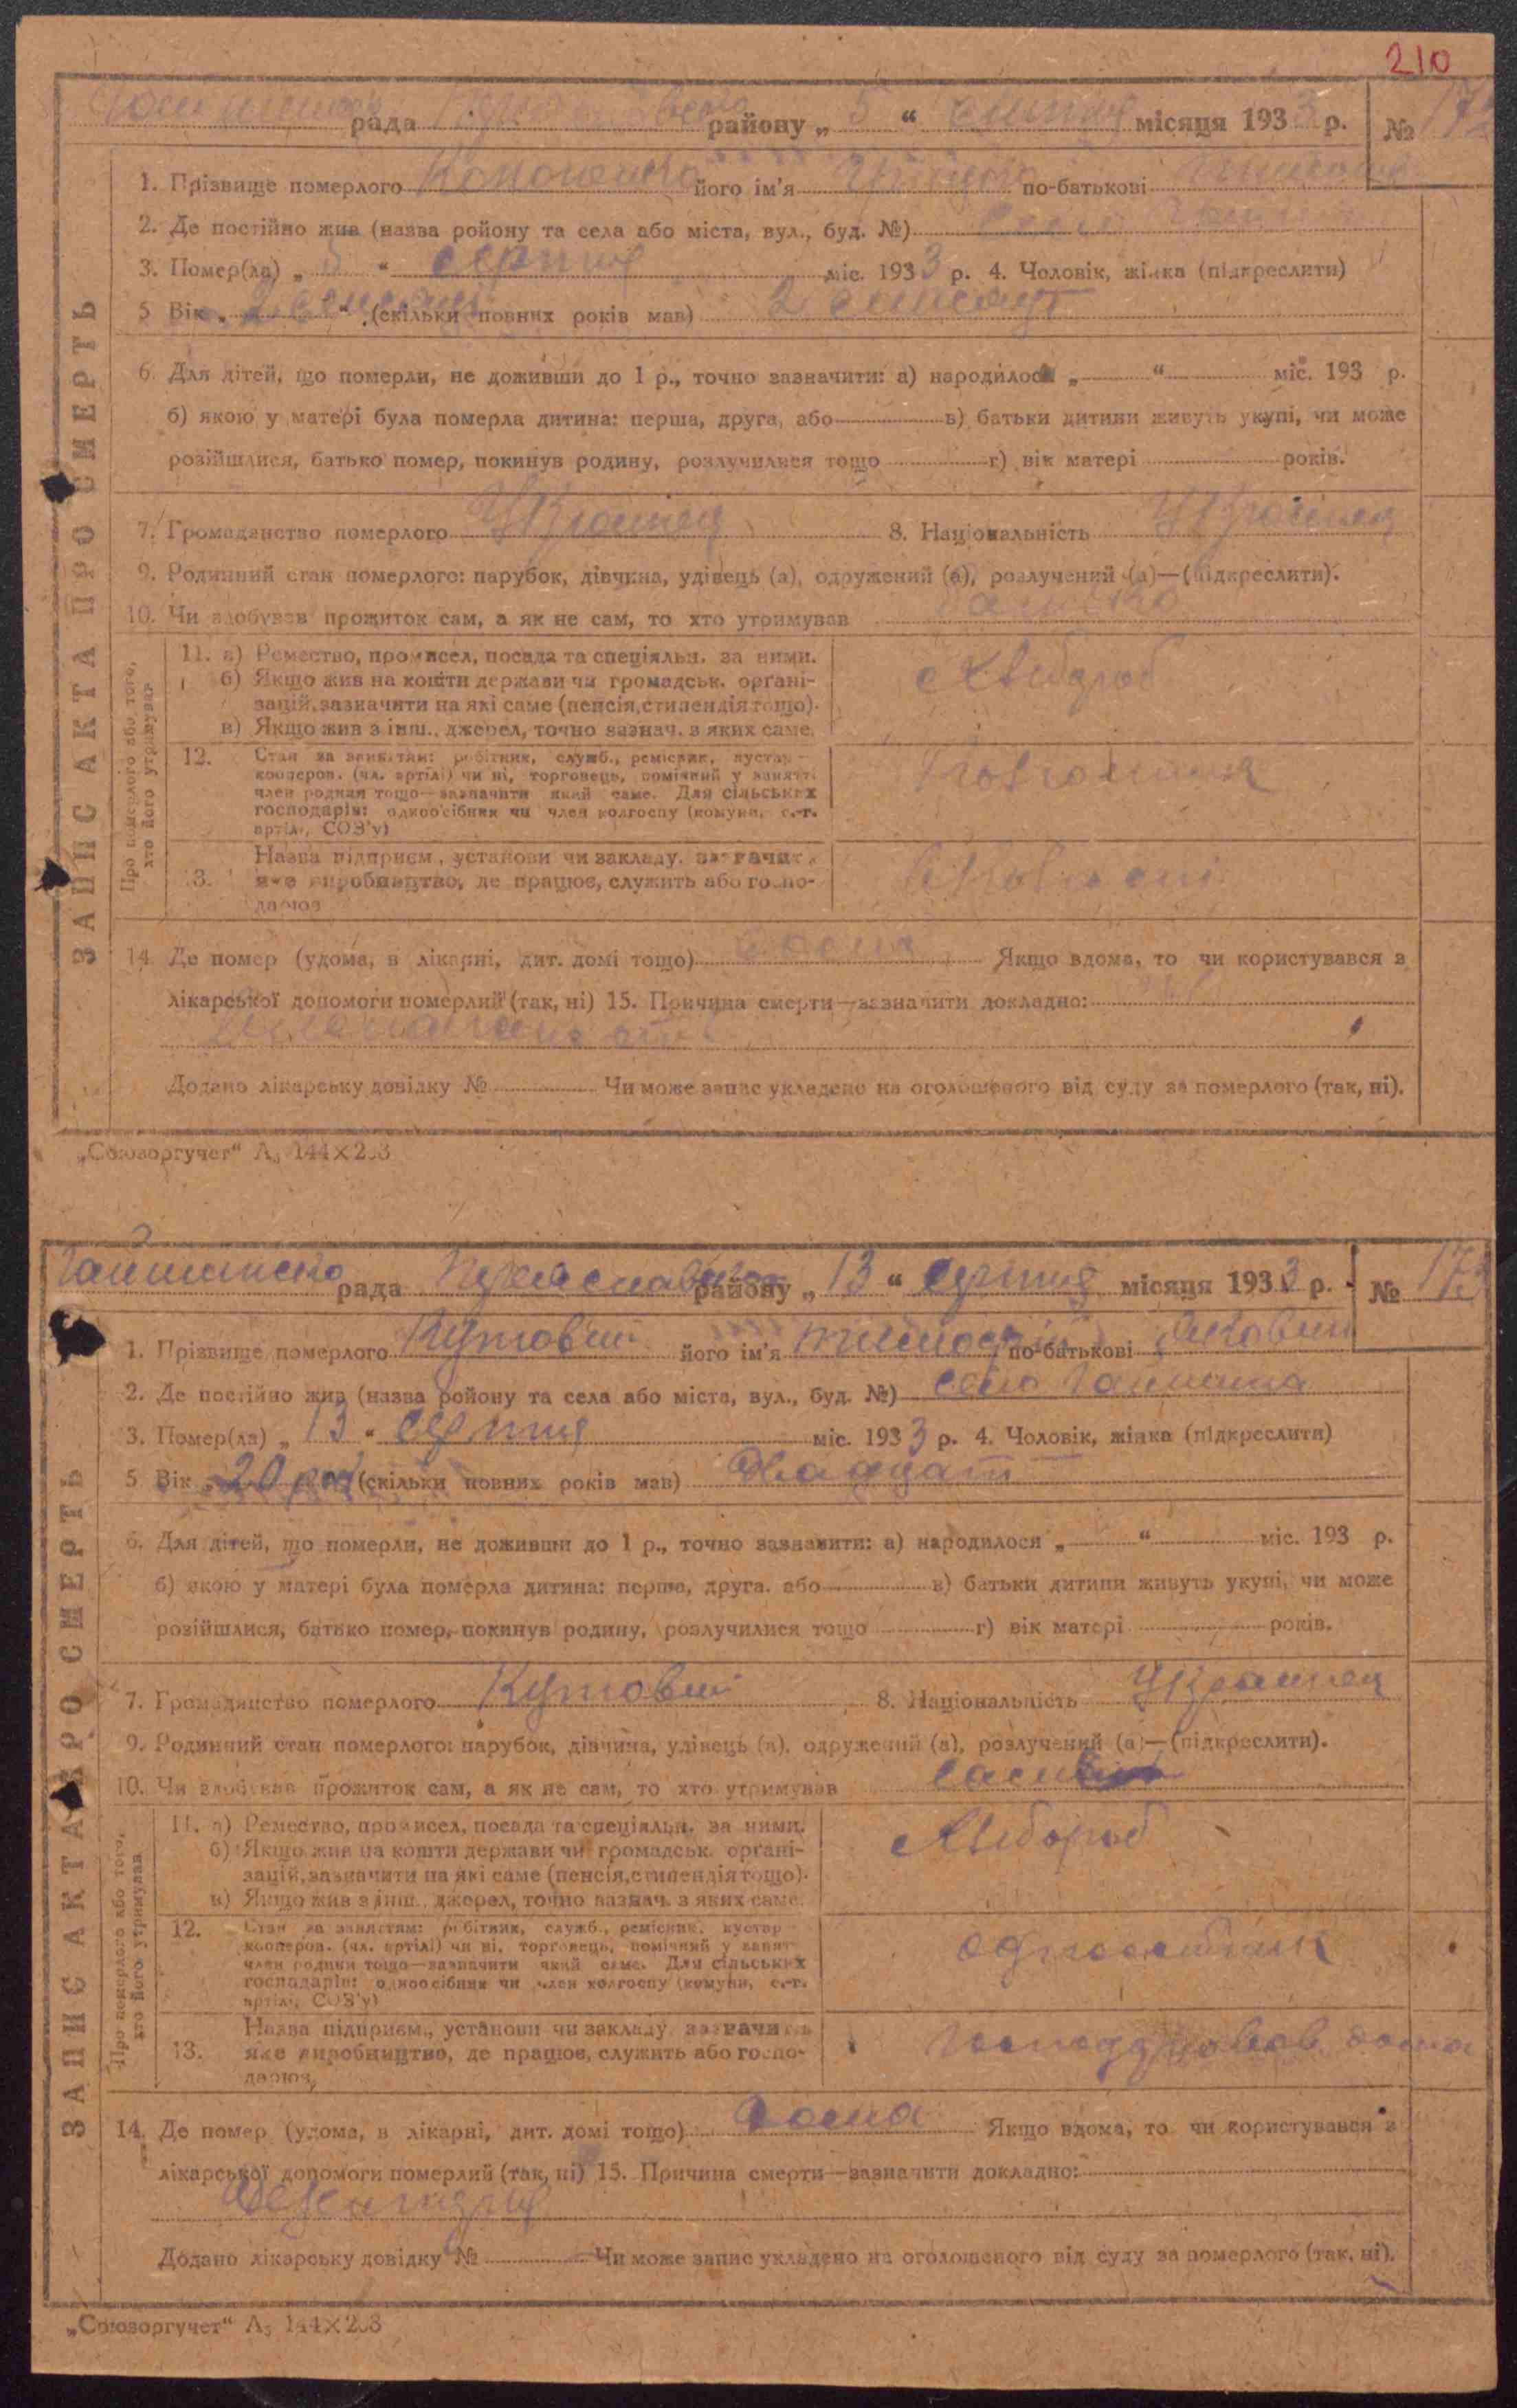 210
рада району „ 5 “ серпня місяця 1933 р. №
1. Прізвище померлого Кононенко його ім'я по-батькові
2. Де постійно жив (назва ройону та села або міста, вул., буд. №) село
3. Помер(ла) „ 5 “ серпня міс. 1933 р. 4. Чоловік, жінка (підкреслити)
5 Вік „ “ (скільки повних років мав) 2
6. Для дітей, що померли, не доживши до 1 р., точно зазначити: а) народилося „ “ міс. 193 р.
б) якою у матері була померла дитина: перша, друга, або в) батьки дитини живуть укупі, чи може
розійшлися, батько помер, покинув родину, розлучилися тощо г) вік матері років.
7. Громадянство померлого Украинец 8. Національність Украинец
9. Родинний стан померлого: парубок, дівчина, удівець (а), одружений (а), розлучений (а)—(підкреслити).
10. Чи здобував прожиток сам, а як не сам, то хто утримував
ЗАПИС АКТА ПРО СМЕРТЬ
Про померлого або того, хто його утримував
11. а) Ремество, промисел, посада та спеціяльн. за ними.
б) Якщо жив на кошти держави чи громадськ. органі-
зацій, зазначити на які саме (пенсія, стипендія тощо).
в) Якщо жив з інш., джерел, точно зазнач. з яких саме.
Хлебороб
12. Стан за заняттям: робітник, служб., ремісник, кустар—
кооперов. (чл. артілі) чи ні, торговець, помічний у занятті
член родини тощо—зазначити який саме. Для сільських
господарів: одноосібник чи член колгоспу (комуни, с.-г.
артілі, СОЗ'у)
13. Назва підприєм., установи чи закладу, зазначить
яке виробництво, де працює, служить або госпо-
дарює
14. Де помер (удома, в лікарні, дит. домі тощо) дома Якщо вдома, то чи користувався з
лікарської допомоги померлий (так, ні) 15. Причина смерти—зазначити докладно:
Додано лікарську довідку № Чи може запис укладено на оголошеного від суду за померлого (так, ні).
„Союзоргучет“ А5 144×203
рада району „ 13 “ серпня місяця 1933 р. № 173
1. Прізвище померлого Кутовий його ім'я Тимофій по-батькові
2. Де постійно жив (назва ройону та села або міста, вул., буд. №) село
3. Помер(ла) „ 13 “ серпня міс. 1933 р. 4. Чоловік, жінка (підкреслити)
5 Вік „ 20 “ (скільки повних років мав) двадцать
6. Для дітей, що померли, не доживши до 1 р., точно зазначити: а) народилося „ “ міс. 193 р.
б) якою у матері була померла дитина: перша, друга, або в) батьки дитини живуть укупі, чи може
розійшлися, батько помер, покинув родину, розлучилися тощо г) вік матері років.
7. Громадянство померлого Кутовий 8. Національність Украинец
9. Родинний стан померлого: парубок, дівчина, удівець (а), одружений (а), розлучений (а)—(підкреслити).
10. Чи здобував прожиток сам, а як не сам, то хто утримував
ЗАПИС АКТА ПРО СМЕРТЬ
Про померлого або того, хто його утримував
11. а) Ремество, промисел, посада та спеціяльн. за ними.
б) Якщо жив на кошти держави чи громадськ. органі-
зацій, зазначити на які саме (пенсія, стипендія тощо).
в) Якщо жив з інш., джерел, точно зазнач. з яких саме.
Хлебороб
12. Стан за заняттям: робітник, служб., ремісник, кустар—
кооперов. (чл. артілі) чи ні, торговець, помічний у занятті
член родини тощо—зазначити який саме. Для сільських
господарів: одноосібник чи член колгоспу (комуни, с.-г.
артілі, СОЗ'у)
одноосібник
13. Назва підприєм., установи чи закладу, зазначить
яке виробництво, де працює, служить або госпо-
дарює
дома
14. Де помер (удома, в лікарні, дит. домі тощо) дома Якщо вдома, то чи користувався з
лікарської допомоги померлий (так, ні) 15. Причина смерти—зазначити докладно:
Дезинтерия
Додано лікарську довідку № Чи може запис укладено на оголошеного від суду за померлого (так, ні).
„Союзоргучет“ А5 144×203